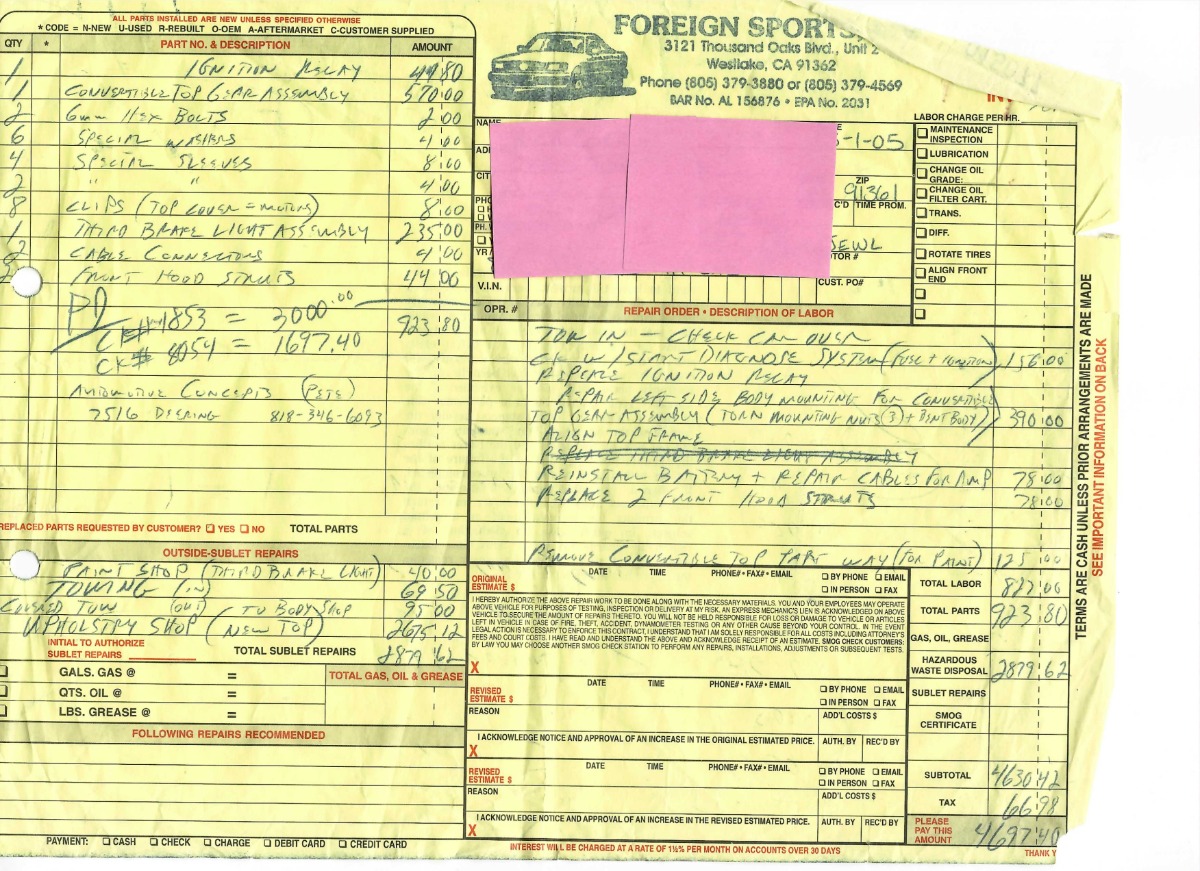 ALL PARTS INSTALLED ARE NEW UNLESS SPECIFIED OTHERWISE
* CODE = N-NEW U-USED R-REBUILT O-OEM A-AFTERMARKET C-CUSTOMER SUPPLIED
QTY * PART NO. & DESCRIPTION AMOUNT
1 IGNITION RELAY 49.80
1 CONVERTIBLE TOP GEAR ASSEMBLY 570.00
2 6mm HEX BOLTS 2.00
6 SPECIAL WASHERS 4.00
4 SPECIAL SLEEVES 8.00
2 " " 4.00
8 CLIPS (TOP COVER = MOTORS) 8.00
1 THIRD BRAKE LIGHT ASSEMBLY 235.00
2 CABLE CONNECTORS 4.00
2 FRONT HOOD STRUTS 44.00
923.80
PD
CK# 1853 = 3000.00
CK# 8054 = 1697.40
AUTOMOTIVE CONCEPTS (PETE)
7516 DEERING 818-346-6093
REPLACED PARTS REQUESTED BY CUSTOMER? YES NO TOTAL PARTS
OUTSIDE-SUBLET REPAIRS
PAINT SHOP (THIRD BRAKE LIGHT) 40.00
TOWING (IN) 69.50
COVERED TOW (OUT) (TO BODY SHOP 95.00
UPHOLSTRY SHOP (NEW TOP) 2675.12
INITIAL TO AUTHORIZE
SUBLET REPAIRS TOTAL SUBLET REPAIRS 2879.62
GALS. GAS @ = TOTAL GAS, OIL & GREASE
QTS. OIL @ =
LBS. GREASE @ =
FOLLOWING REPAIRS RECOMMENDED
PAYMENT: CASH CHECK CHARGE DEBIT CARD CREDIT CARD
FOREIGN SPORTS
3121 Thousand Oaks Blvd., Unit 2
Westlake, CA 91362
Phone (805) 379-3880 or (805) 379-4569
BAR No. AL 156876 • EPA No. 2031
NAME
-1-05
CIT ZIP
91361
C'D TIME PROM.
PH.
V.I.N. CUST. PO#
OPR. # REPAIR ORDER • DESCRIPTION OF LABOR
TOW IN - CHECK CAR OVER
CK W/START DIAGNOSE SYSTEM (FUSE + IGNITION) 156.00
REPLACE IGNITION RELAY
REPAIR LEFT SIDE BODY MOUNTING FOR CONVERTIBLE
TOP GEAR ASSEMBLY (TORN MOUNTING NUTS (3) + BENT BODY) 390.00
ALIGN TOP FRAME
REPLACE THIRD BRAKE LIGHT ASSEMBLY
REINSTALL BATTERY + REPAIR CABLES FOR AMP 78.00
REPLACE 2 FRONT HOOD STRUTS 78.00
REMOVE CONVERTIBLE TOP PART WAY (FOR PAINT) 125.00
LABOR CHARGE PER HR.
MAINTENANCE INSPECTION
LUBRICATION
CHANGE OIL GRADE:
CHANGE OIL FILTER CART.
TRANS.
DIFF.
ROTATE TIRES
ALIGN FRONT END
ORIGINAL ESTIMATE $ DATE TIME PHONE# • FAX# • EMAIL BY PHONE EMAIL IN PERSON FAX
I HEREBY AUTHORIZE THE ABOVE REPAIR WORK TO BE DONE ALONG WITH THE NECESSARY MATERIALS. YOU AND YOUR EMPLOYEES MAY OPERATE
ABOVE VEHICLE FOR PURPOSES OF TESTING, INSPECTION OR DELIVERY AT MY RISK. AN EXPRESS MECHANIC'S LIEN IS ACKNOWLEDGED ON ABOVE
VEHICLE TO SECURE THE AMOUNT OF REPAIRS THERETO. YOU WILL NOT BE HELD RESPONSIBLE FOR LOSS OR DAMAGE TO VEHICLE OR ARTICLES
LEFT IN VEHICLE IN CASE OF FIRE, THEFT, ACCIDENT, DYNAMOMETER TESTING OR ANY OTHER CAUSE BEYOND YOUR CONTROL. IN THE EVENT
LEGAL ACTION IS NECESSARY TO ENFORCE THIS CONTRACT, I UNDERSTAND THAT I AM SOLELY RESPONSIBLE FOR ALL COSTS INCLUDING ATTORNEY'S
FEES AND COURT COSTS. I HAVE READ AND UNDERSTAND THE ABOVE AND ACKNOWLEDGE RECEIPT OF AN ESTIMATE. SMOG CHECK CUSTOMERS:
BY LAW YOU MAY CHOOSE ANOTHER SMOG CHECK STATION TO PERFORM ANY REPAIRS, INSTALLATIONS, ADJUSTMENTS OR SUBSEQUENT TESTS.
X
REVISED ESTIMATE $ DATE TIME PHONE# • FAX# • EMAIL BY PHONE EMAIL IN PERSON FAX
REASON ADD'L COSTS $
I ACKNOWLEDGE NOTICE AND APPROVAL OF AN INCREASE IN THE ORIGINAL ESTIMATED PRICE. AUTH. BY REC'D BY
X
REVISED ESTIMATE $ DATE TIME PHONE# • FAX# • EMAIL BY PHONE EMAIL IN PERSON FAX
REASON ADD'L COSTS $
I ACKNOWLEDGE NOTICE AND APPROVAL OF AN INCREASE IN THE REVISED ESTIMATED PRICE. AUTH. BY REC'D BY
X
INTEREST WILL BE CHARGED AT A RATE OF 1½% PER MONTH ON ACCOUNTS OVER 30 DAYS
TOTAL LABOR 827.00
TOTAL PARTS 923.80
GAS, OIL, GREASE
HAZARDOUS WASTE DISPOSAL 2879.62
SUBLET REPAIRS
SMOG CERTIFICATE
SUBTOTAL 4630.42
TAX 66.98
PLEASE PAY THIS AMOUNT 4697.40
THANK Y
TERMS ARE CASH UNLESS PRIOR ARRANGEMENTS ARE MADE
SEE IMPORTANT INFORMATION ON BACK